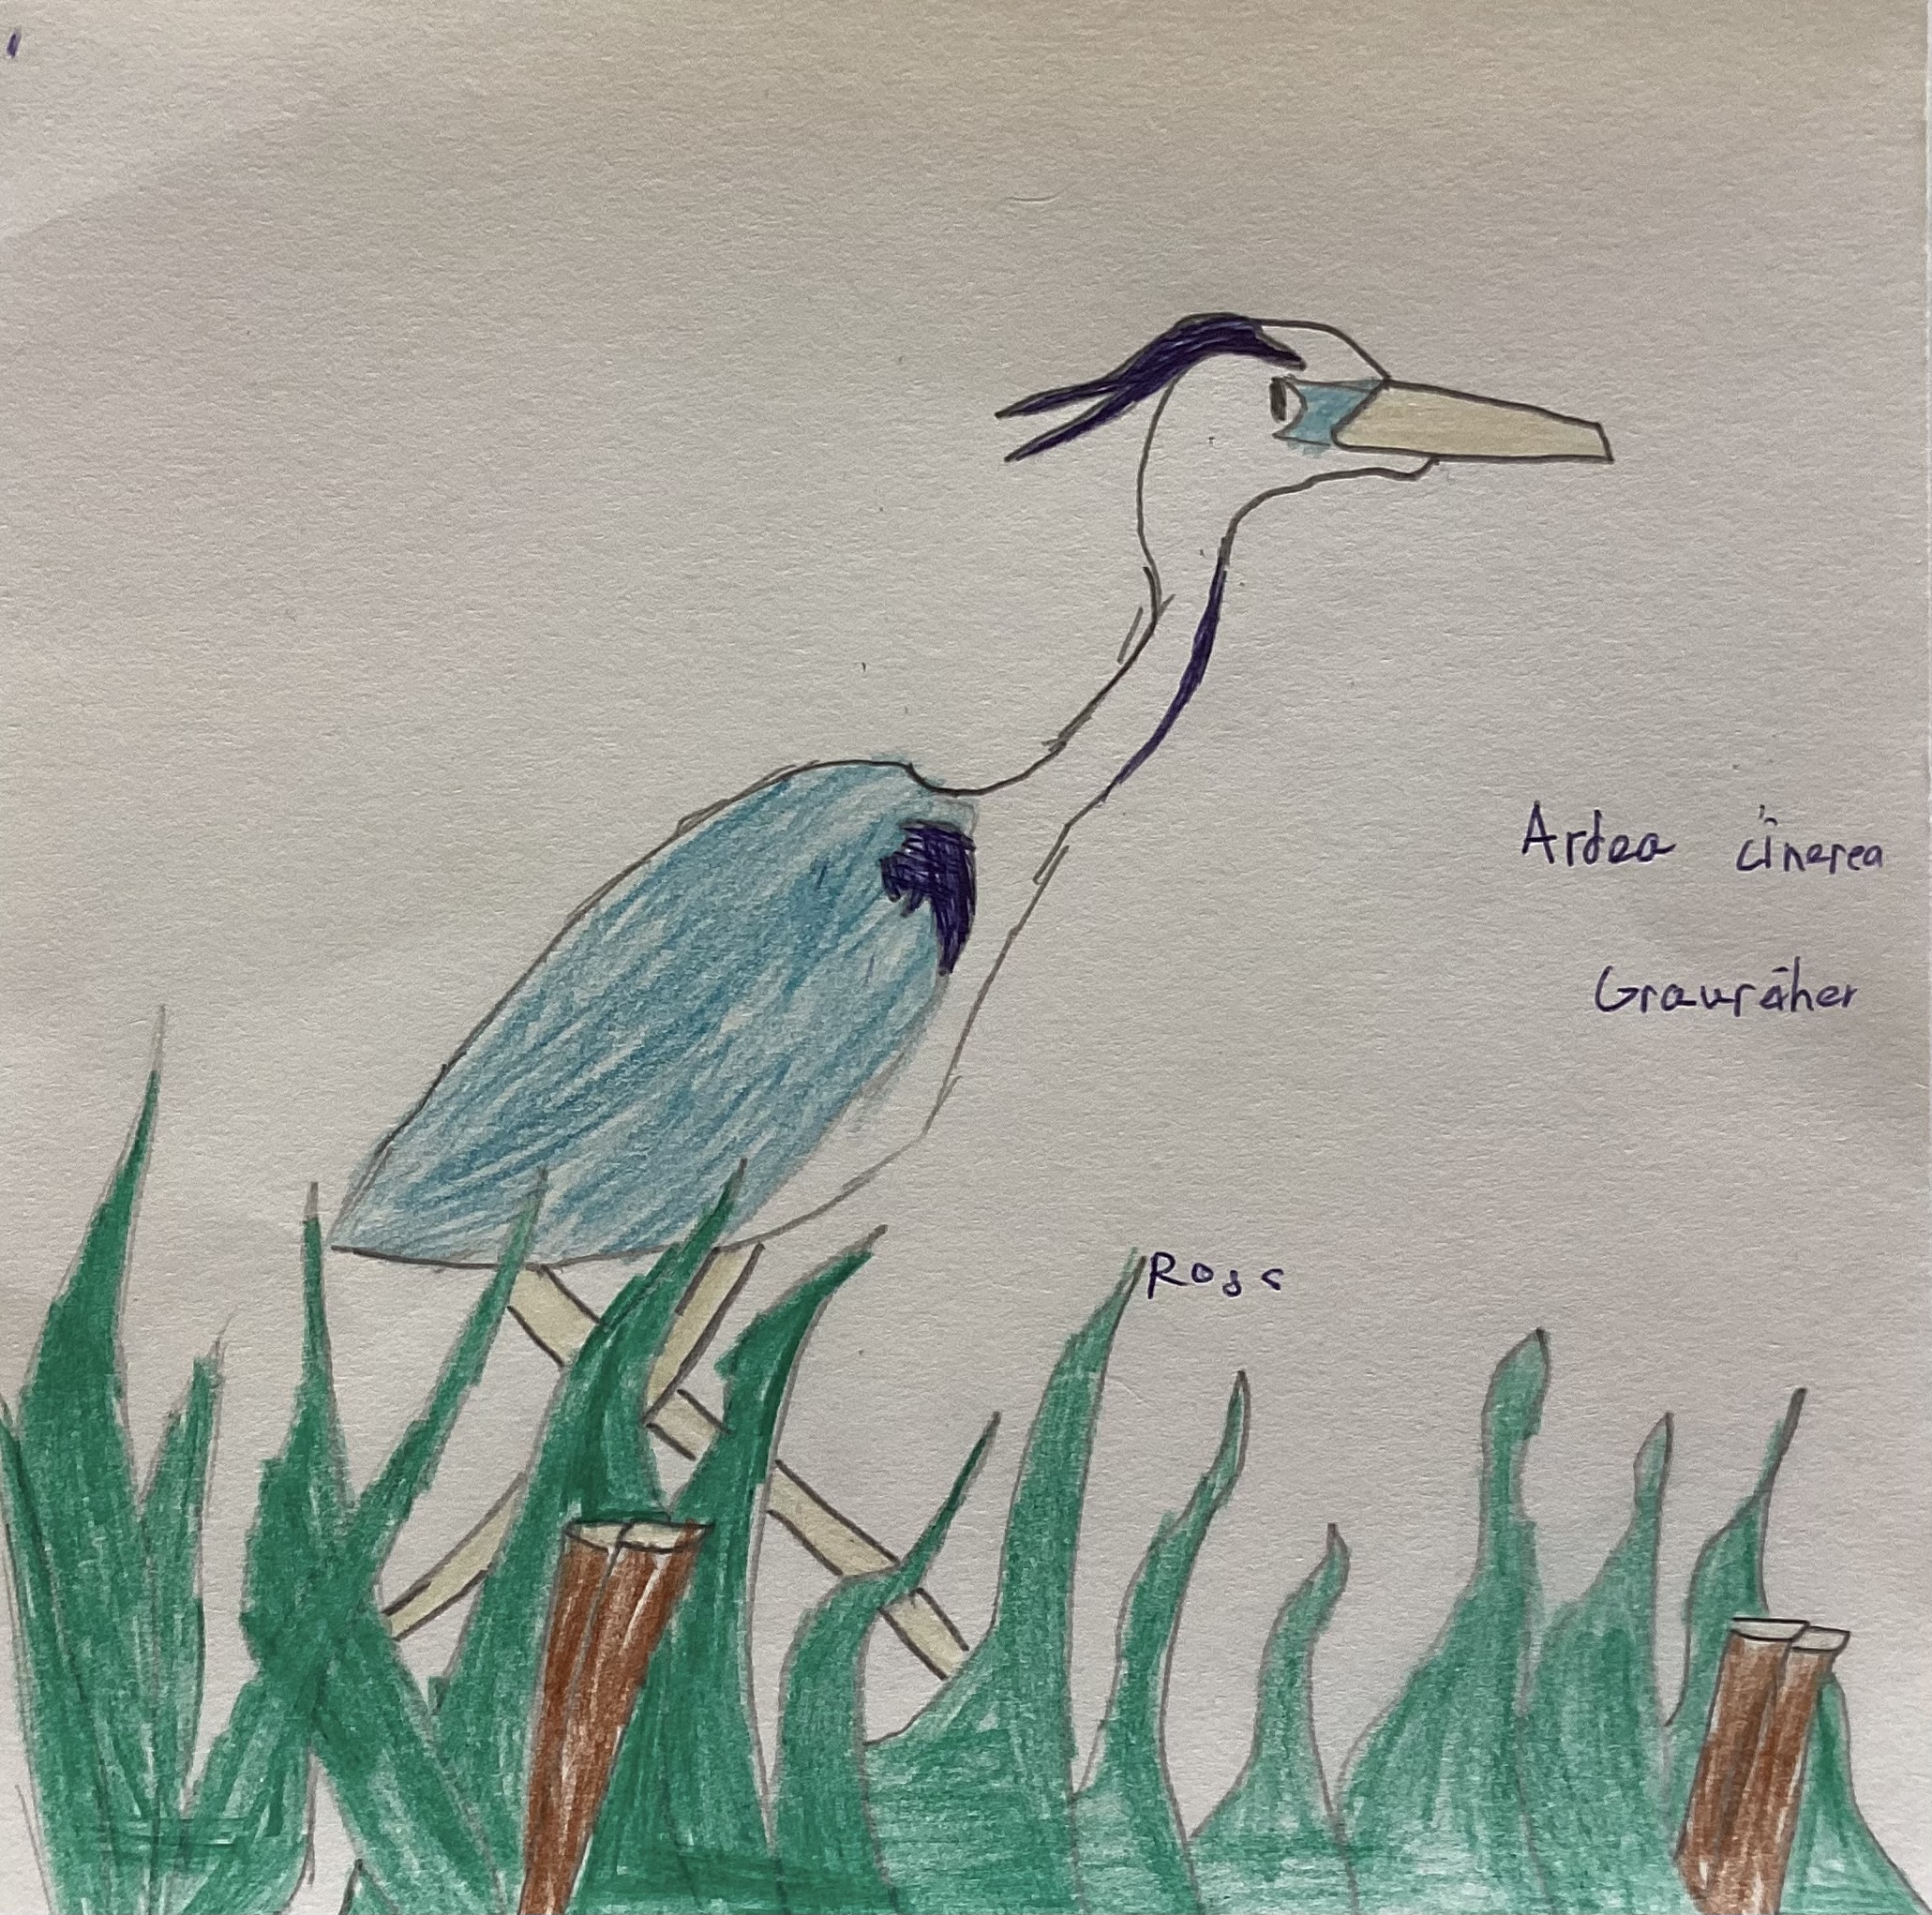 Ardea cinerea
Grauräher
Ross